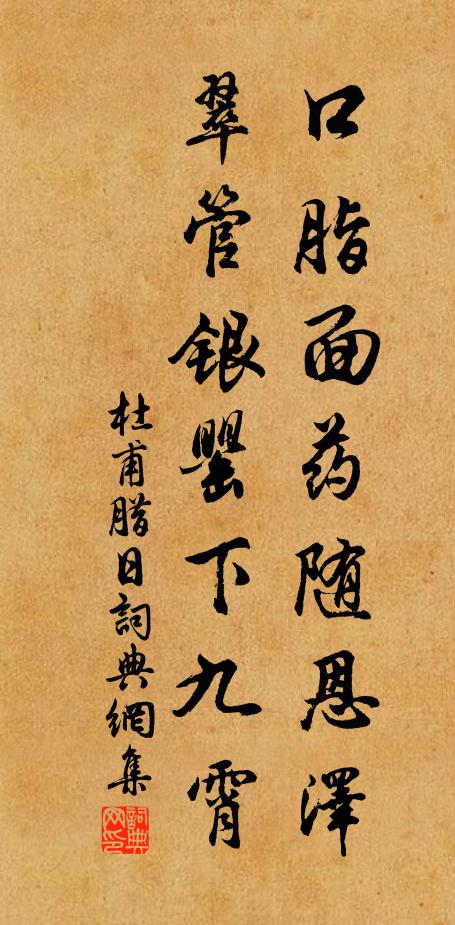 口脂面药随恩澤
翠管銀罌下九霄
杜甫腊日詞典網集
詞典网印